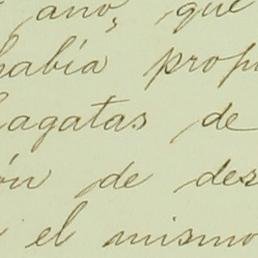 año, que
había prop
agatas de
ón de des
el mismo